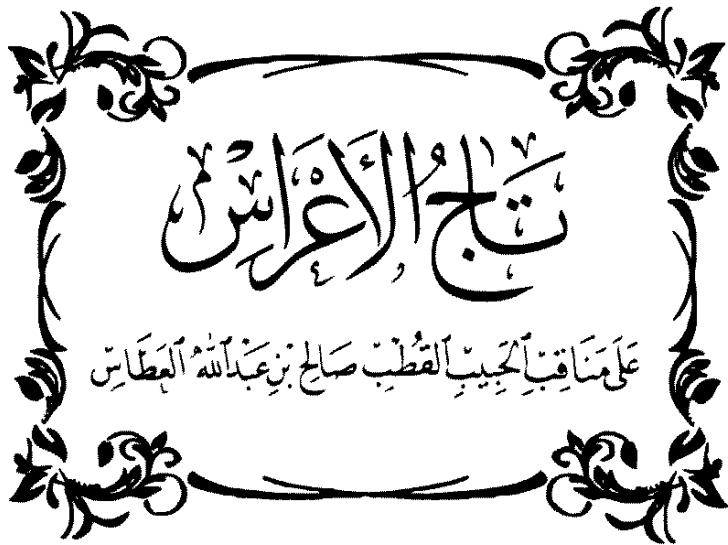 تَاجُ الْأَعْرَاسِ
عَلَى مَنَاقِبِ الْحَبِيبِ الْقُطْبِ صَالِحِ بْنِ عَبْدِ اللهِ الْعَطَّاسِ